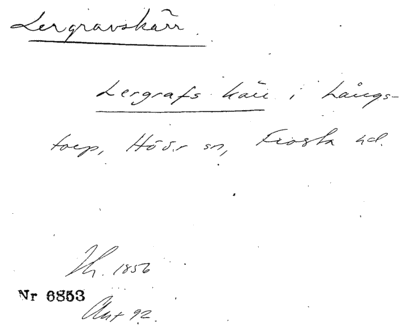 Lergravskärr
Lergrafs kärr i Långs-
torp, Höörs sn, Frosta hd.
Ih. 1856
Nr 6853
Akt 92.